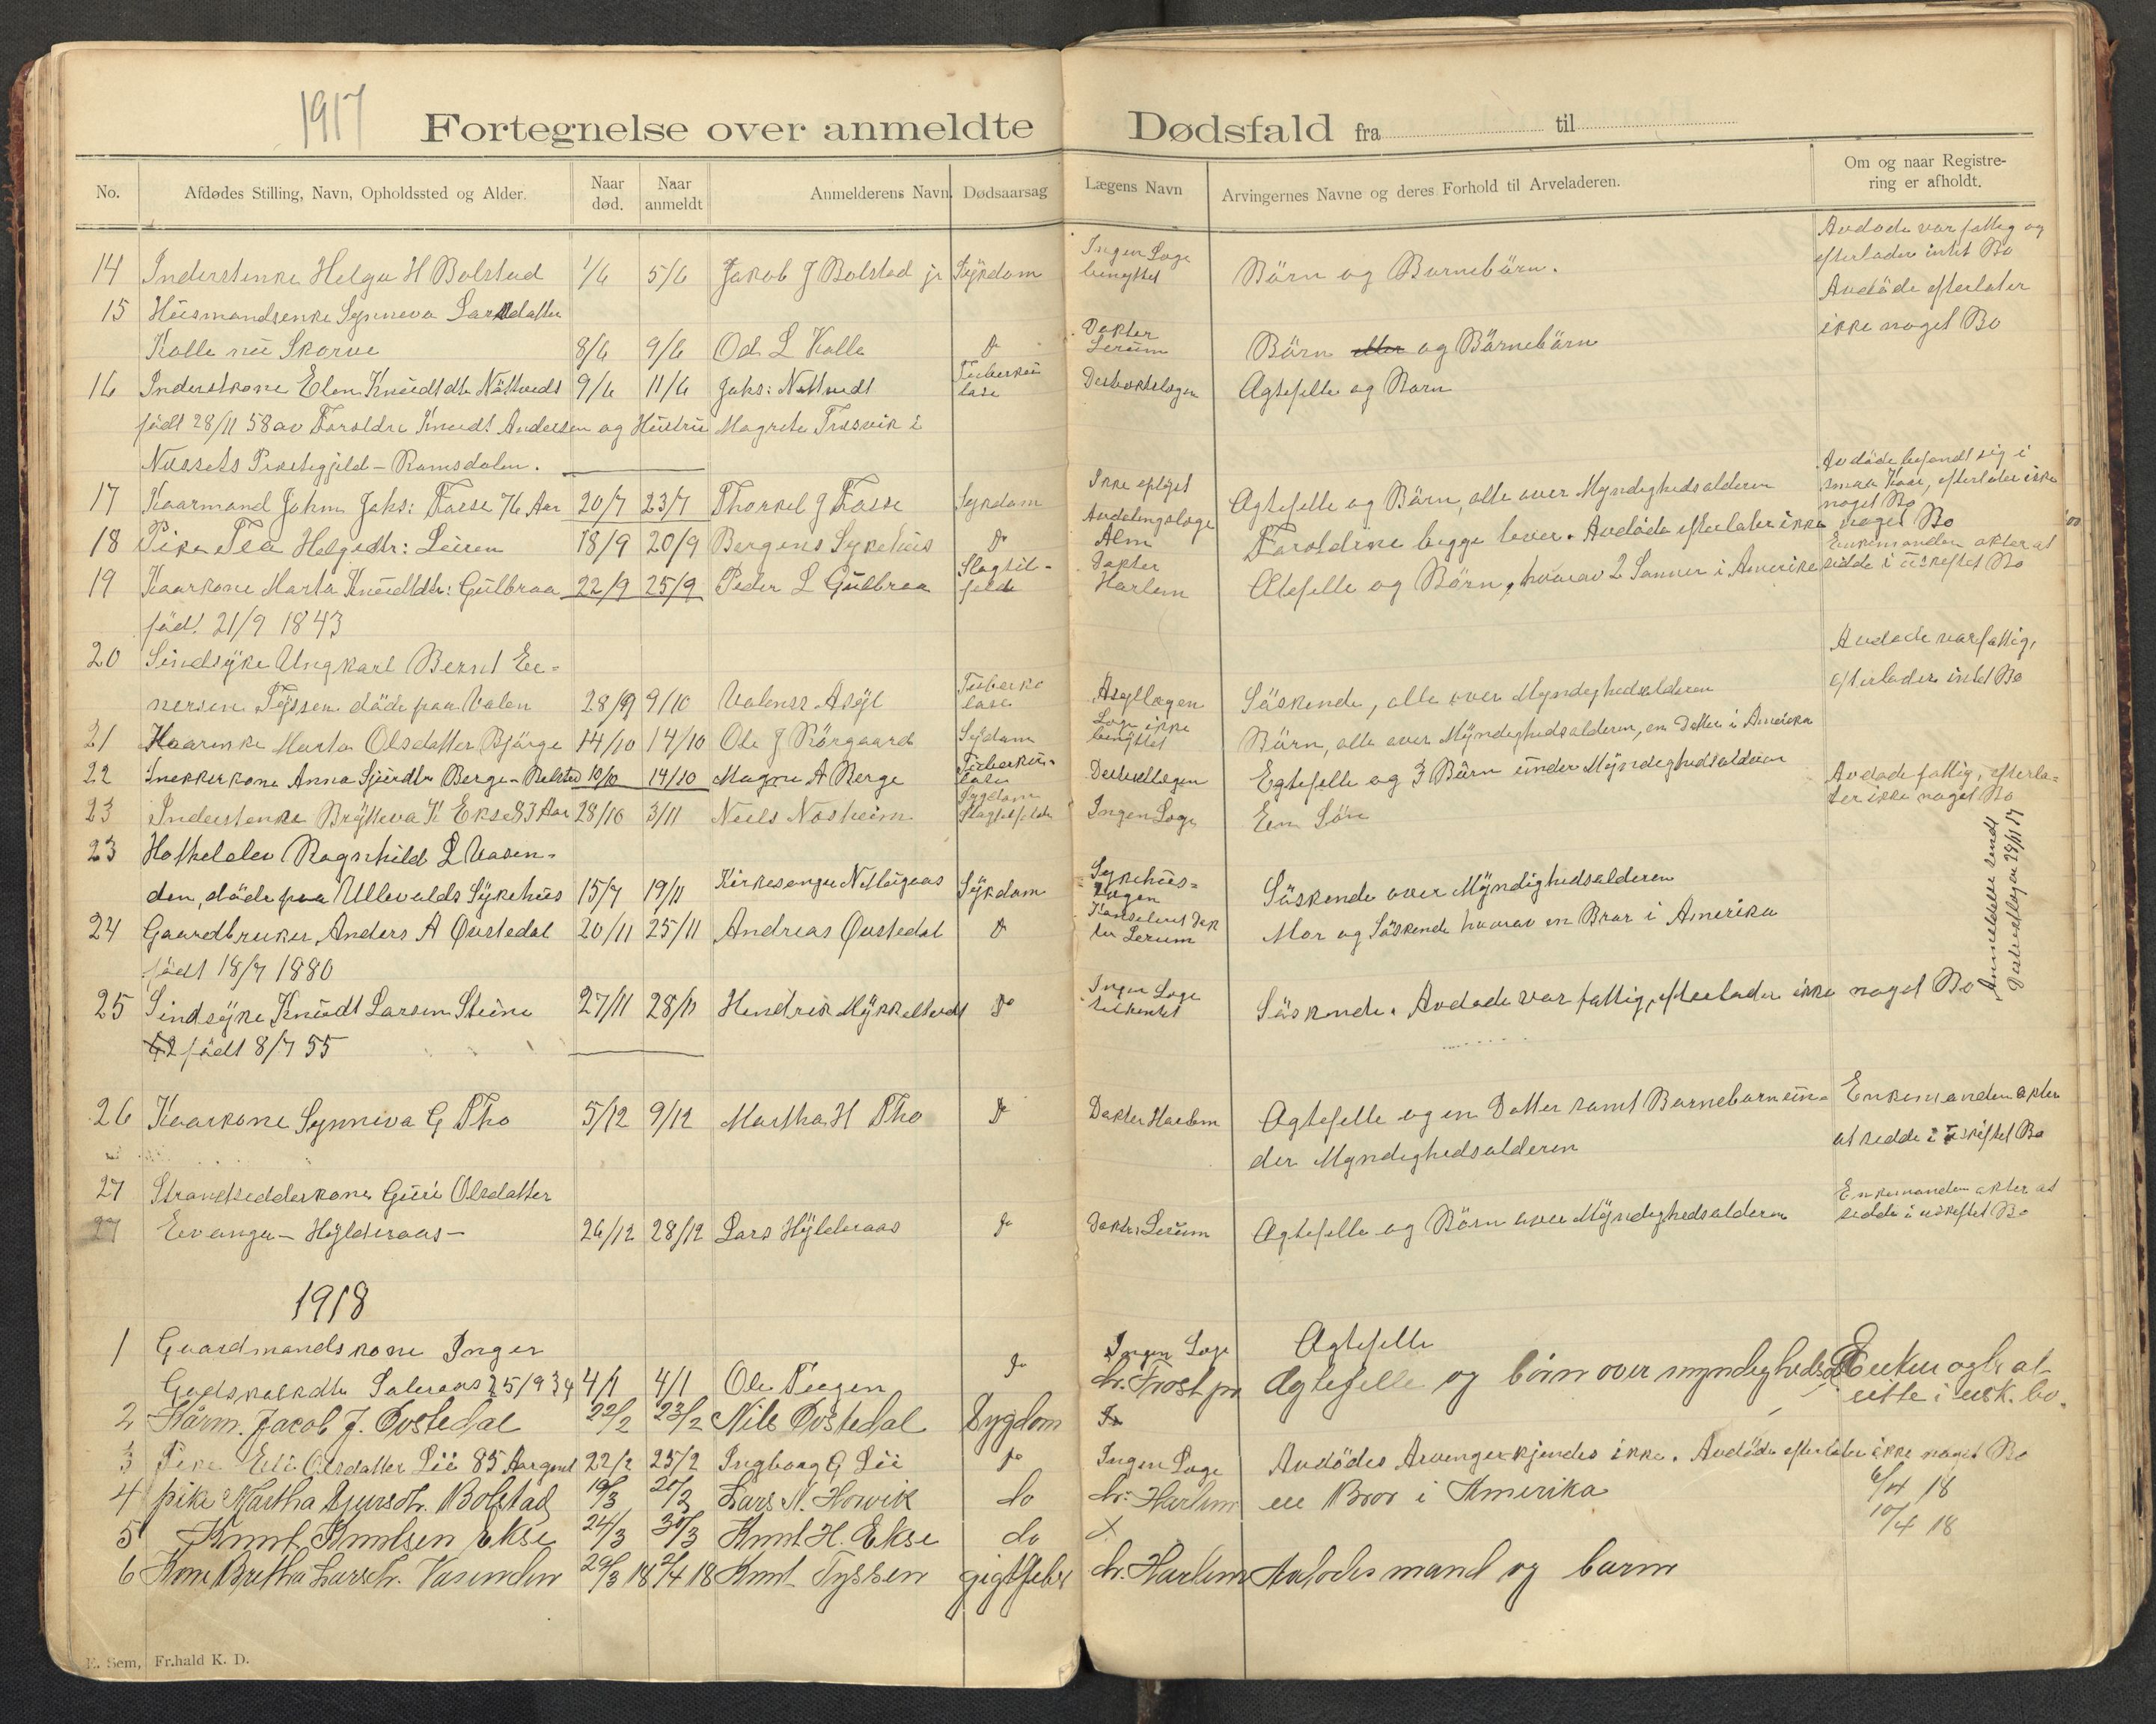 1917
Fortegnelse over anmeldte Dødsfald fra til
No. Afdødes Stilling, Navn, Opholdssted og Alder. Naar død. Naar anmeldt Anmelderens Navn. Dødsaarsag Lægens Navn Arvingernes Navne og deres Forhold til Arveladeren. Om og naar Registrering er afholdt.
14 Inderstenke Helga H Bolstad 1/6 5/6 Jakob J Bolstad jr Sykdom Ingen Læge benyttet Børn og Barnebørn. Avdøde var fattig og efterlader intet Bo
15 Husmandsenke Synneva Larsdatter
Kolle nu Skorve 8/6 9/6 Od. L Kolle Do Dokter Lerum Börn eller og Börnebörn Avdöde efterlater ikke noget Bo
16 Inderstkone Elen Knudtdtr Nåttvedt 9/6 11/6 Jaks: Nåttvedt Tuberkulose Agtefelle og Barn
födt 28/11 58 av Foreldre Knudt Andersen og Hustru Magrete i
Nessets Prestegjeld - Romsdalen.
17 Kaarmand Johan Jaks: Fosse 76 Aar 20/7 23/7 Thorkel J Fosse Sykdom Ikke oplyst Agtefelle og Börn, alle over Myndighedsalderen Avdöde befandt sig i smaa Kaar, efterlater ikke noget Bo
18 Pike Tea Helgedtr: Leiren 18/9 20/9 Bergens Sykehus Do Avdelingslæge Alm Foreldrene begge lever. Avdöde efterlater ikke noget Bo
19 Kaarkone Marta Knudtdtr: Gulbraa 22/9 25/9 Peder L Gulbraa Slagtilfelde Dokter Harlem Atefelle og Börn, hvorav 2 Sønner i Amerika Enkemanden akter at sidde i uskiftet Bo
född 21/9 1843
20 Sindsyke Ungkarl Bernt Ei-
nersen Tyssen döde paa Valen 28/9 9/10 Valens Asyl Tuberkolose Asyllægen Söskende, alle over Myndighedsalderen Avdøde var fattig, efterlader intet Bo
21 Kaarenke Marta Olsdatter Bjørge 14/10 14/10 Ole J Rörgaard Sykdom Læge ikke benyttet Börn, alle over Myndighedsalderen, en Datter i Amerika
22 Snekkerkone Anna Sjurdtr Berge - Bolstad 10/10 14/10 Magne A Berge Tuberkulose Egtefelle og 3 Börn under Myndighedsalderen
23 Inderstenke Brytteva K Ekse 83 Aar 28/10 3/11 Niels Nosheim Sygdom Slagtilfelde Ingen Læge Em Sön Avdøde fattig, efterlater ikke noget Bo
23 Hotheielev Ragnhild L Vasen-
den, döde paa Ullevolds Sykehus 15/7 19/11 Kirkesanger Sykdom Sykehuslægen Söskende over Myndighedsalderen
24 Gaardbruker Anders A Øvstedal 20/11 25/11 Andreas Øvstedal Do Konsulent Dokter Lerum Mor og Söskende hvorav en Bror i Amerika Anmeldelse sendt 28/11 17
född 18/7 1880
25 Sindsyke Knudt Larsen Steine 27/11 28/11 Hendrik Mykkeltvedt Do Ingen Læge tilkentet Söskende. Avdøde var fattig, efterlader ikke noget Bo
62 födt 8/7 55
26 Kaarkone Synneva G Tho 5/12 9/12 Martha H Tho Do Dokter Harlem Agtefelle og en Datter samt Barnebarn un-
der Myndighedsalderen Enkemanden akter at sidde i uskiftet Bo
27 Strandsidderkone Guri Olsdatter
27 Evanger - Hylderaas - 26/12 28/12 Lars Hylderaas Do Dokter Lerum Agtefelle og Börn over Myndighedsalderen Enkemanden akter at sidde i uskiftet Bo
1918
1 Gaardmandskone Inger
25/9 34 4/1 4/1 Ole Teigen Do Ingen Læge Agtefelle
2 Kårm. Jacob J. Øvstedal 22/2 23/2 Nils Øvstedal Sygdom dr. Frost Agtefelle og börn over myndighedsal Enken agter at sitte i usk. bo.
3 Pike Eli Olsdatter Lii 85 Aar gml 22/2 25/2 Ingborg G Lii Do Ingen Læge Avdødes Arvinger kjendes ikke. Avdöde efterlater ikke noget Bo
4 pike Martha Sjursdtr. Bolstad 19/3 20/3 Lars N. Horvik do dr. Harlem en Bror i Amerika 6/4 18
5 Knut Knutsen Ekse 24/3 30/3 Knut H. Ekse do 10/4 18
6 Kone Britha Larsdtr. Vasenden 29/3 18 2/4 18 Knut Tyssen gigtfeber dr. Harlem Avdødes mand og barn
E. Sem, Fr.hald K. D.